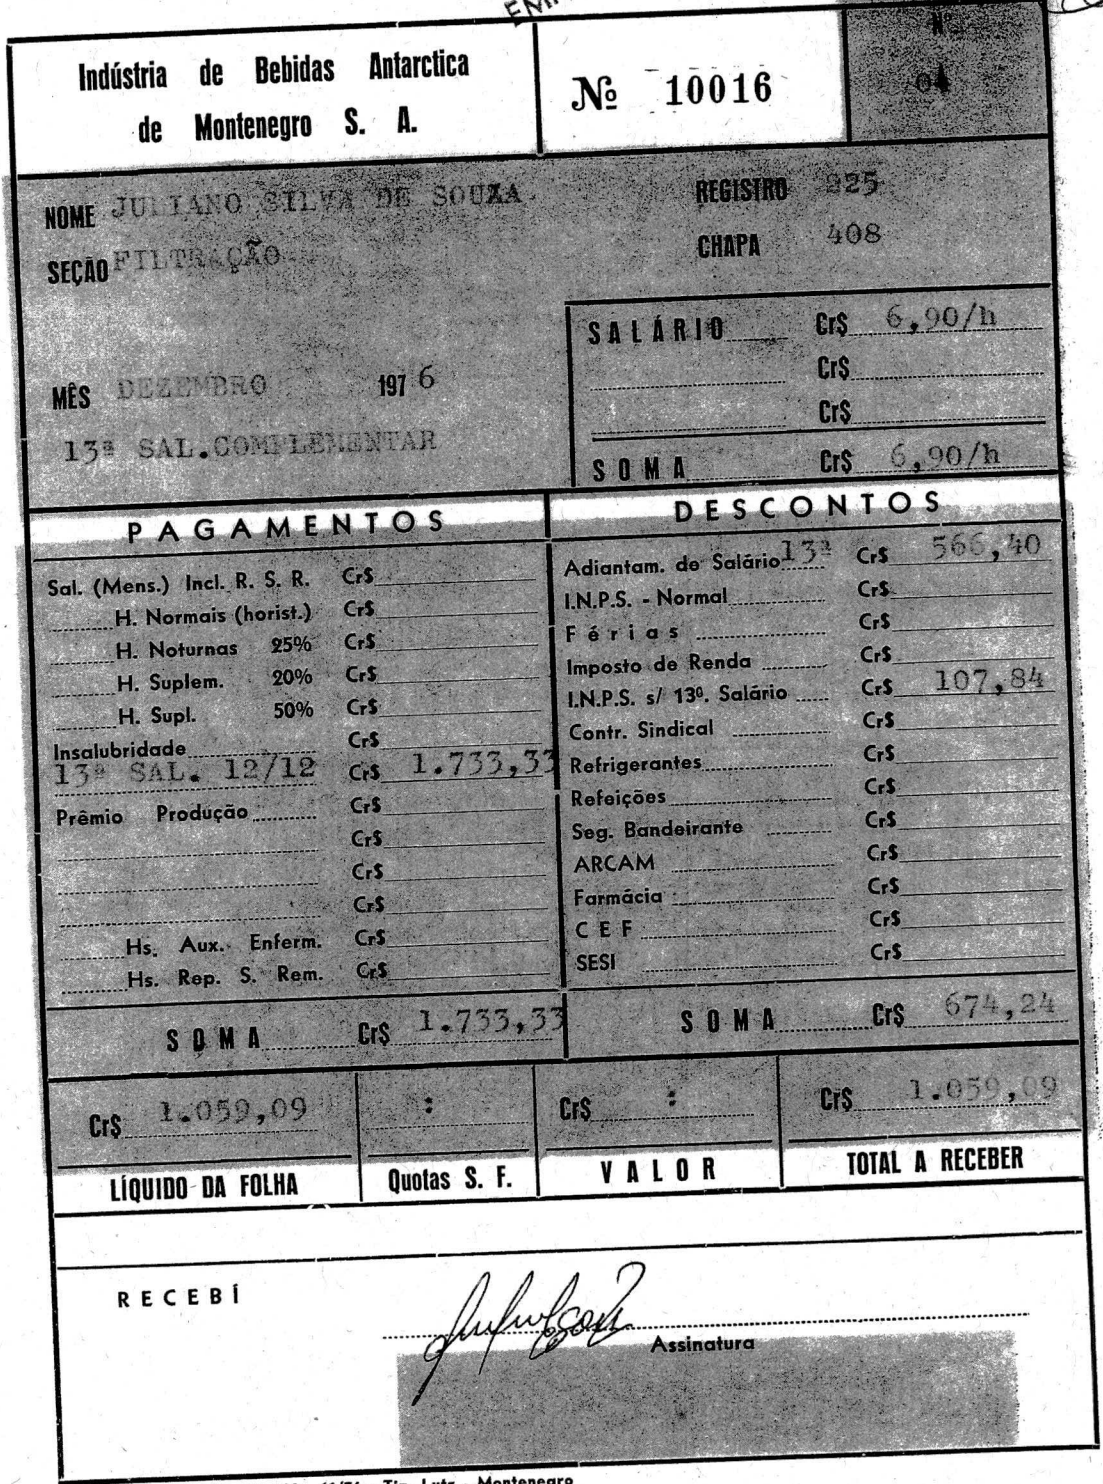 Indústria de Bebidas Antarctica
de Montenegro S. A.
Nº 10016
Nº
04
NOME JULIANO SILVA DE SOUZA
REGISTRO 225
SEÇÃO FILTRAÇÃO
CHAPA 408
SALÁRIO Cr$ 6,90/h
Cr$
MÊS DEZEMBRO 1976
Cr$
13ª SAL.COMPLEMENTAR
SOMA Cr$ 6,90/h
PAGAMENTOS
Sal. (Mens.) Incl. R. S. R. Cr$
H. Normais (horist.) Cr$
H. Noturnas 25% Cr$
H. Suplem. 20% Cr$
H. Supl. 50% Cr$
Insalubridade Cr$
13ª SAL. 12/12 Cr$ 1.733,33
Prêmio Produção Cr$
Cr$
Cr$
Cr$
Hs. Aux. Enferm. Cr$
Hs. Rep. S. Rem. Cr$
SOMA Cr$ 1.733,33
DESCONTOS
Adiantam. de Salário 13ª Cr$ 566,40
I.N.P.S. - Normal Cr$
Férias Cr$
Imposto de Renda Cr$
I.N.P.S. s/ 13º. Salário Cr$ 107,84
Contr. Sindical Cr$
Refrigerantes Cr$
Refeições Cr$
Seg. Bandeirante Cr$
ARCAM Cr$
Farmácia Cr$
CEF Cr$
SESI Cr$
SOMA Cr$ 674,24
Cr$ 1.059,09 : Cr$ : Cr$ 1.059,09
LÍQUIDO DA FOLHA Quotas S. F. VALOR TOTAL A RECEBER
RECEBÍ
Assinatura
Tip. Lutz - Montenegro